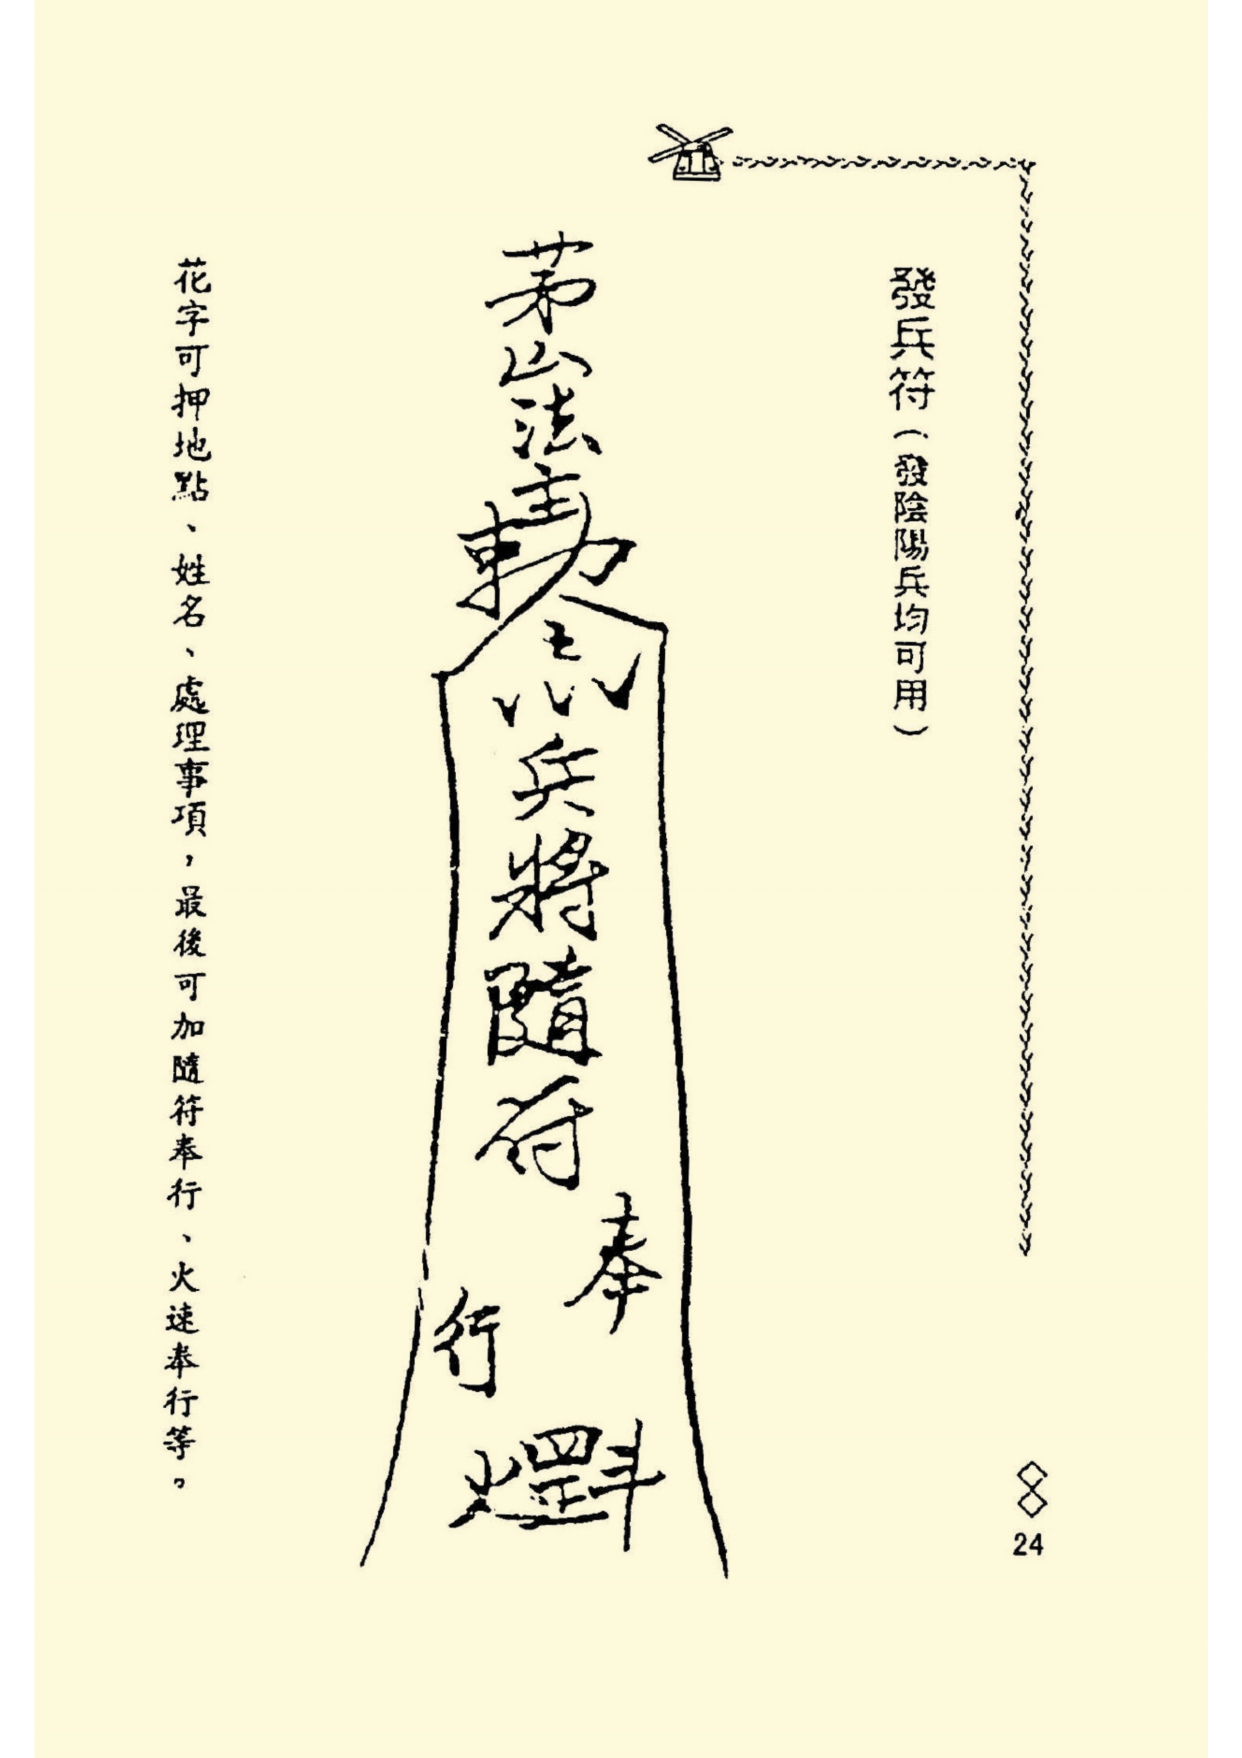 發兵符（發陰陽兵均可用）
茅山法主
勅令
兵將隨符
奉行
花字可押地點、姓名、處理事項，最後可加隨符奉行、火速奉行等。
24